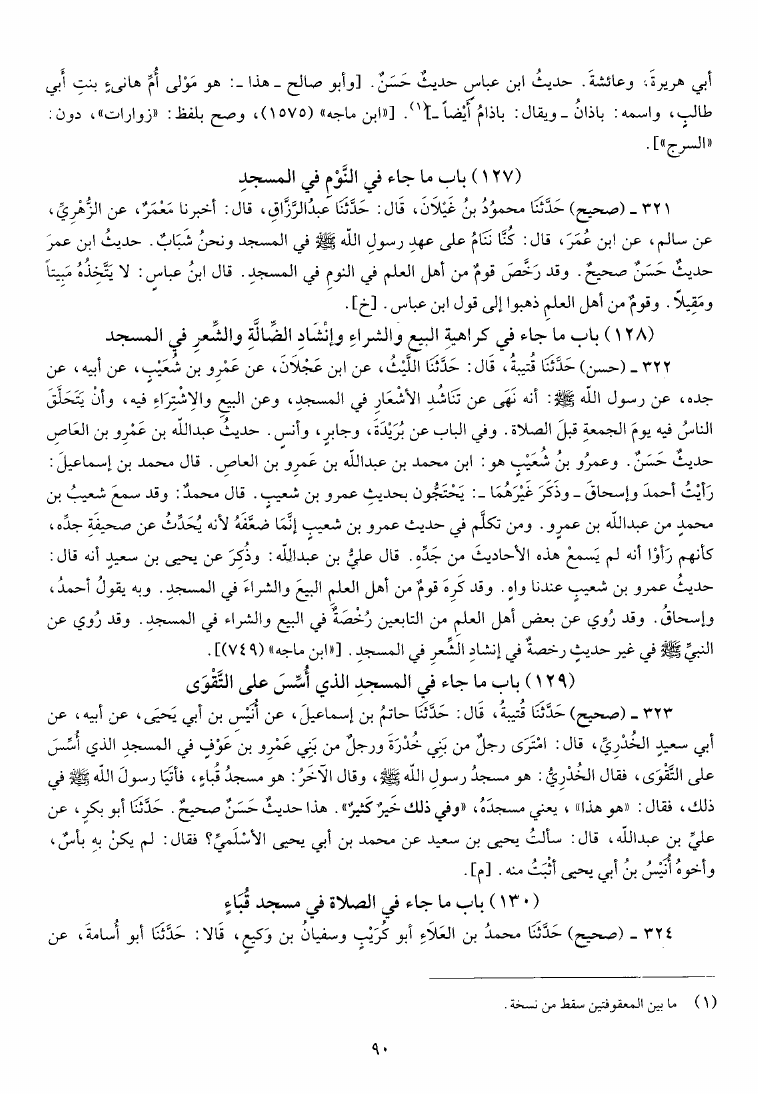 أبي هريرةَ، وعائشةَ. حديثُ ابن عباسٍ حديثٌ حَسَنٌ. [وأبو صالح ـ هذا ـ: هو مَوْلى أُمِّ هانىءٍ بنتِ أَبي
طالبٍ، واسمه: باذانُ ـ ويقال: باذامُ أَيْضاً ـ](١). [«ابن ماجه» (١٥٧٥)، وصح بلفظ: «زوارات»، دون:
«السرج»].
(١٢٧) باب ما جاء في النَّوْمِ في المسجدِ
٣٢١ ـ (صحيح) حَدَّثَنَا محمودُ بنُ غَيْلَانَ، قَال: حَدَّثَنَا عبدُالرَّزَّاقِ، قال: أخبرنا مَعْمَرٌ، عن الزُّهْرِيِّ،
عن سالمٍ، عن ابن عُمَرَ، قال: كُنَّا نَنَامُ على عهدِ رسولِ اللّه ﷺ في المسجد ونحنُ شَبَابٌ. حديثُ ابن عمرَ
حديثٌ حَسَنٌ صحيحٌ. وقد رَخَّصَ قومٌ من أهل العلم في النومِ في المسجدِ. قال ابنُ عباسٍ: لا يَتَّخِذُهُ مَبِيتاً
ومَقِيلاً. وقومٌ من أهل العلمِ ذهبوا إلى قول ابن عباس. [خ].
(١٢٨) باب ما جاء في كراهيةِ البيعِ والشراءِ وإنْشَادِ الضَّالَّةِ والشِّعرِ في المسجد
٣٢٢ ـ (حسن) حَدَّثَنَا قُتيبةُ، قَال: حَدَّثَنَا اللَّيْثُ، عن ابن عَجْلَانَ، عن عَمْرِو بن شُعَيْبٍ، عن أبيه، عن
جده، عن رسول اللّه ﷺ: أنه نَهَى عن تَنَاشُدِ الأشْعَارِ في المسجدِ، وعن البيعِ والاِشْتِرَاءِ فيه، وأنْ يَتَحَلَّقَ
الناسُ فيه يومَ الجمعةِ قبلَ الصلاة. وفي الباب عن بُرَيْدَةَ، وجابرٍ، وأنسٍ. حديثُ عبداللّه بن عَمْرِو بن العَاصِ
حديثٌ حَسَنٌ. وعمرُو بنُ شُعَيْبٍ هو: ابن محمد بن عبداللّه بن عَمرو بن العاصِ. قال محمد بن إسماعيلَ:
رَأيْتُ أحمدَ وإسحاقَ ـ وذَكَرَ غَيْرَهُمَا ـ: يَحْتَجُّون بحديثِ عمرو بن شعيبٍ. قال محمدٌ: وقد سمعَ شعيبُ بن
محمدٍ من عبداللّه بن عمرٍو. ومن تكلَّم في حديث عمرو بن شعيبٍ إنَّمَا ضعَّفَهُ لأنه يُحَدِّثُ عن صحيفَةِ جدِّه،
كأنهم رَأَوْا أنه لم يَسمعْ هذه الأحاديثَ من جَدِّهِ. قال عليُّ بن عبداللّه: وذُكِرَ عن يحيى بن سعيدٍ أنه قال:
حديثُ عمرو بن شعيبٍ عندنا واهٍ. وقد كَرِهَ قومٌ من أهل العلمِ البيعَ والشراءَ في المسجدِ. وبه يقولُ أحمدُ،
وإسحاقُ. وقد رُوي عن بعض أهل العلمِ من التابعين رُخْصَةٌ في البيعِ والشراء في المسجدِ. وقد رُوي عن
النبيِّ ﷺ في غير حديثٍ رخصةٌ في إنشادِ الشِّعرِ في المسجدِ. [«ابن ماجه» (٧٤٩)].
(١٢٩) باب ما جاء في المسجدِ الذي أُسِّسَ على التَّقْوَى
٣٢٣ ـ (صحيح) حَدَّثَنَا قُتيبةُ، قَال: حَدَّثَنَا حاتمُ بن إسماعيلَ، عن أُنَيْسِ بن أبي يَحيَى، عن أبيه، عن
أبي سعيدٍ الخُدْرِيِّ، قال: امْتَرَى رجلٌ من بَنِي خُدْرَةَ ورجلٌ من بَنِي عَمْرِو بن عَوْفٍ في المسجدِ الذي أُسِّسَ
على التَّقْوَى، فقال الخُدْرِيُّ: هو مسجدُ رسول اللّه ﷺ، وقال الآخَرُ: هو مسجدُ قُباءٍ، فأتَيَا رسولَ اللّه ﷺ في
ذلك، فقال: «هو هذا» ، يعني مسجدَهُ، «وفي ذلك خَيرٌ كَثيرٌ». هذا حديثٌ حَسَنٌ صحيحٌ. حَدَّثَنَا أبو بكرٍ، عن
عليِّ بن عبداللّه، قال: سألتُ يحيى بن سعيد عن محمد بن أبي يحيى الأسْلَميِّ؟ فقال: لم يكنْ بِه بأسٌ،
وأخوهُ أُنَيْسُ بنُ أبي يحيى أثْبَتُ منه. [م].
(١٣٠) باب ما جاء في الصلاة في مسجد قُبَاءٍ
٣٢٤ ـ (صحيح) حَدَّثَنَا محمدُ بن العَلَاءِ أبو كُرَيْبٍ وسفيانُ بن وَكيعٍ، قَالا: حَدَّثَنَا أبو أُسامةَ، عن
(١) ما بين المعقوفتين سقط من نسخة.
٩٠